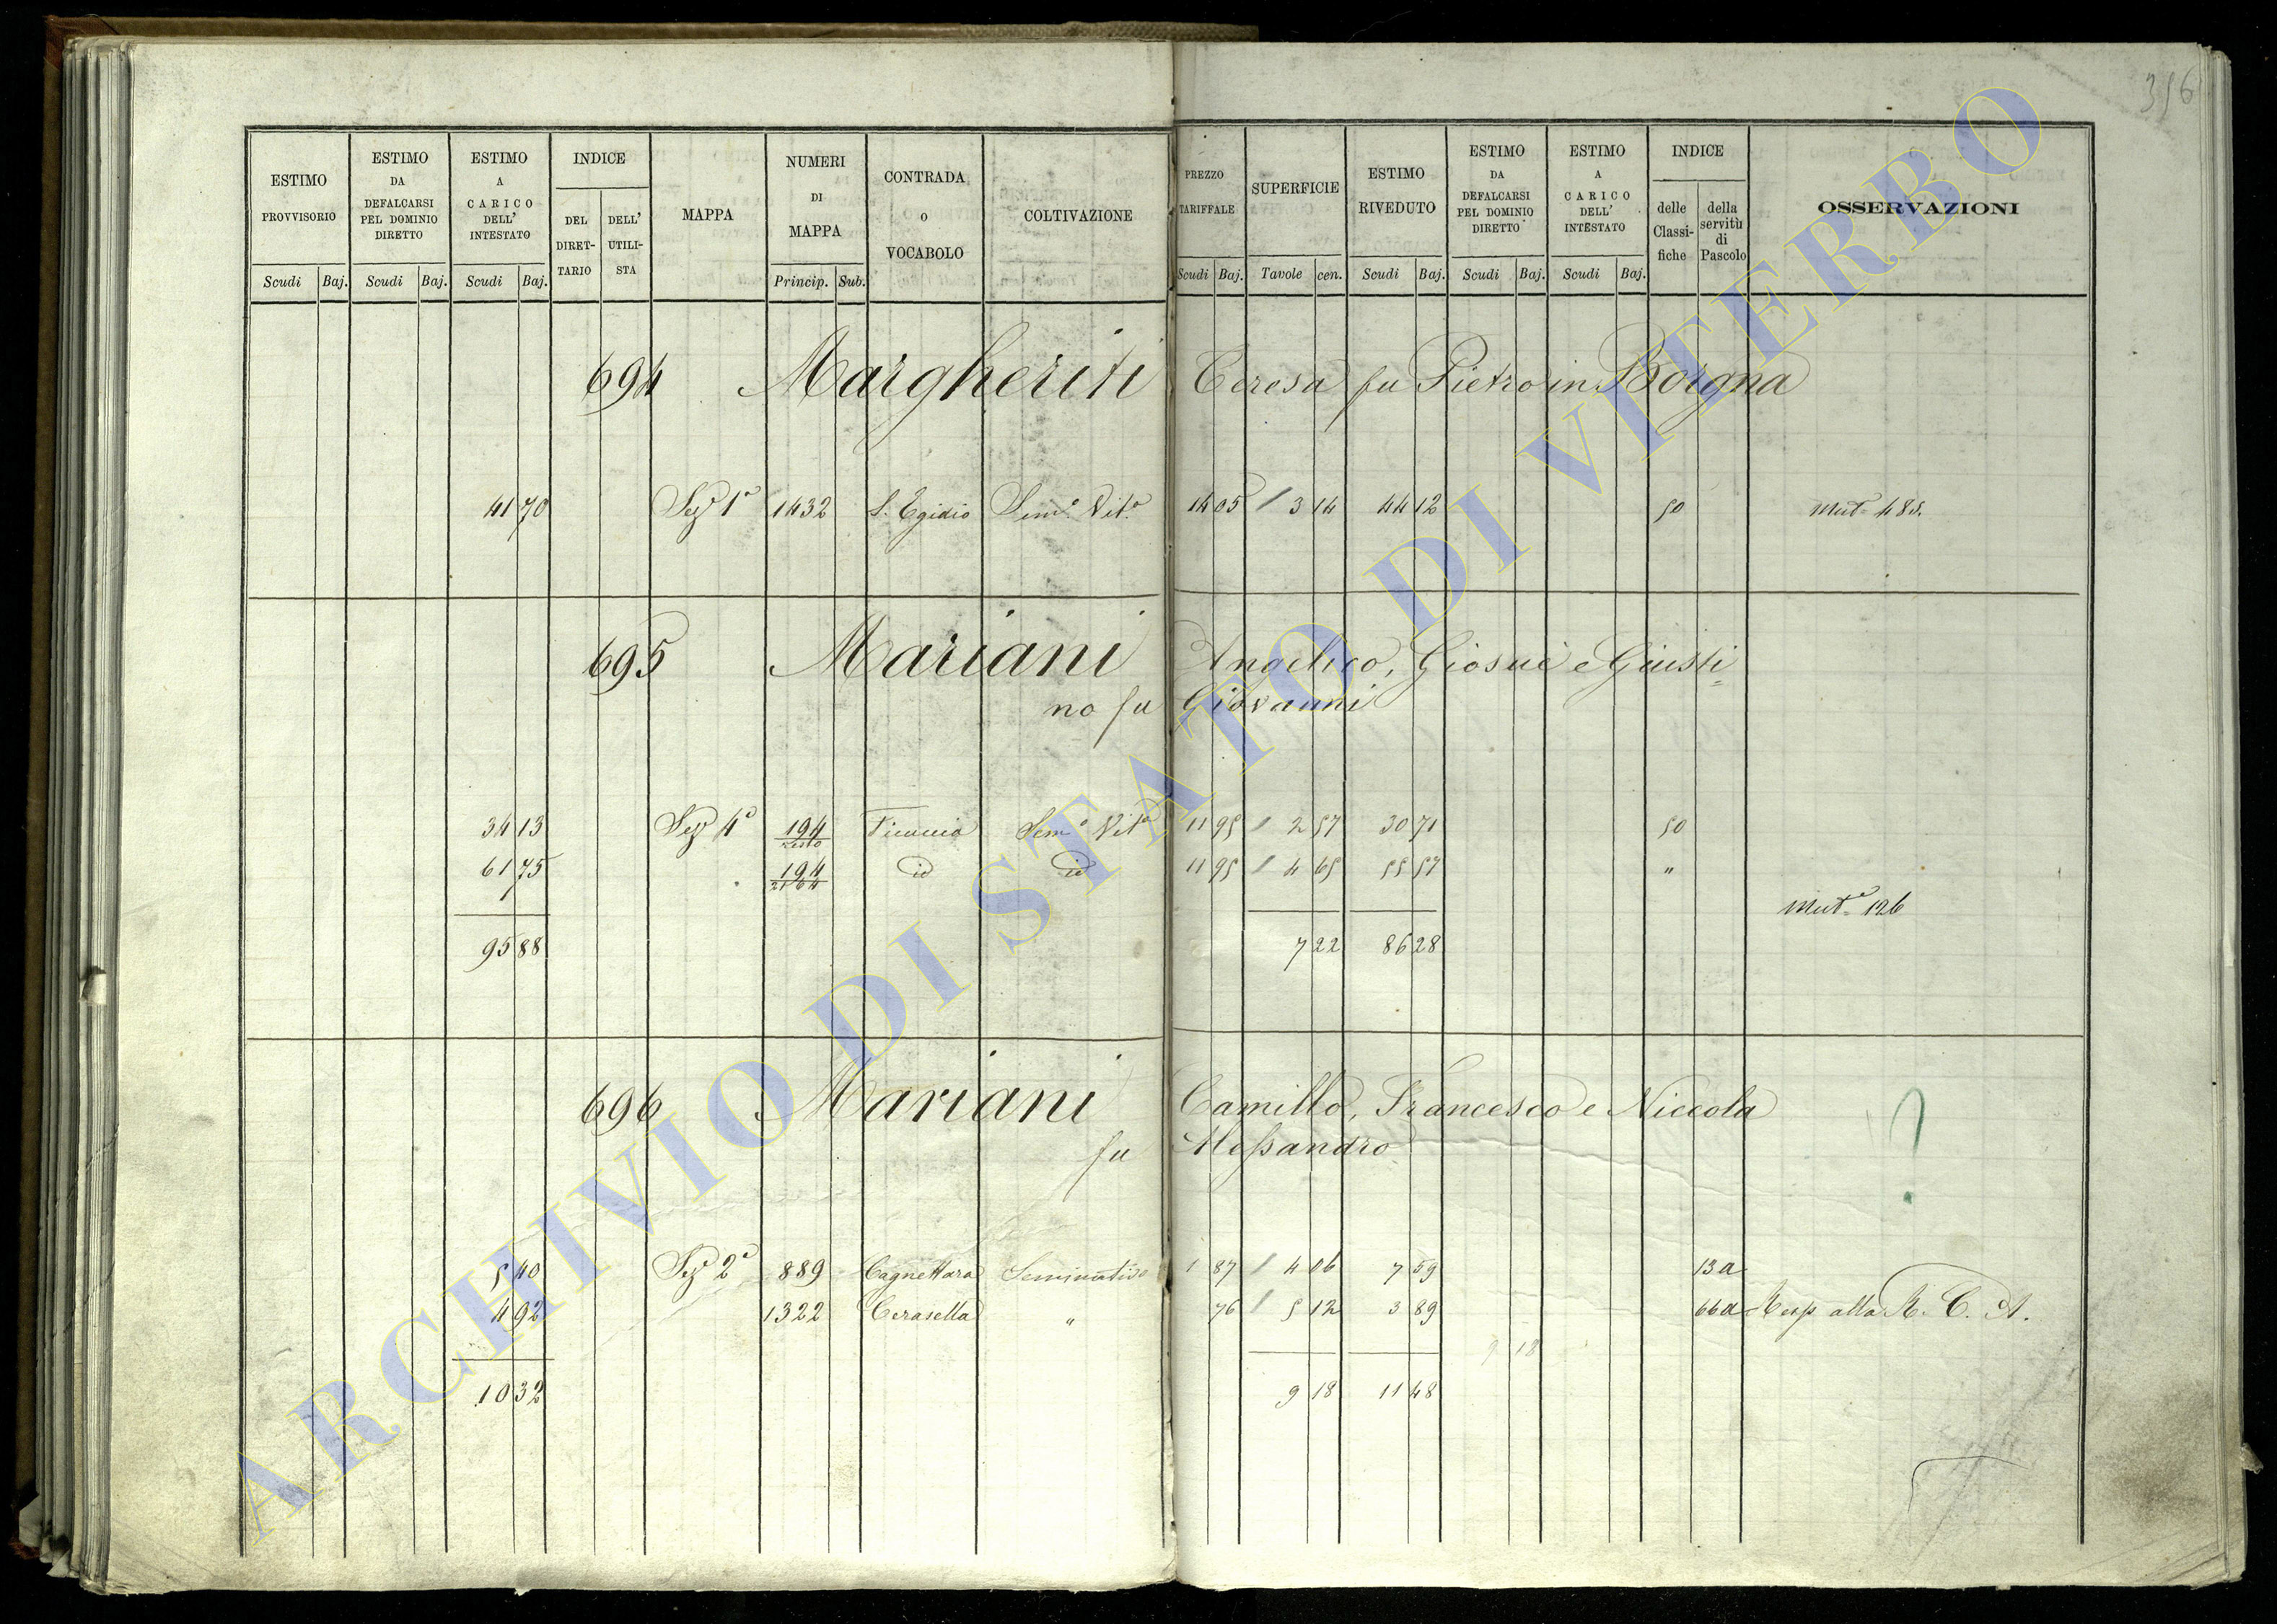 356
ESTIMO PROVVISORIO Scudi Baj.
ESTIMO DA DEFALCARSI PEL DOMINIO DIRETTO Scudi Baj.
ESTIMO A CARICO DELL' INTESTATO Scudi Baj.
INDICE DEL DIRET-TARIO DELL' UTILI-STA
MAPPA
NUMERI DI MAPPA Princip. Sub.
CONTRADA o VOCABOLO
COLTIVAZIONE
PREZZO TARIFFALE Scudi Baj.
SUPERFICIE Tavole cen.
ESTIMO RIVEDUTO Scudi Baj.
ESTIMO DA DEFALCARSI PEL DOMINIO DIRETTO Scudi Baj.
ESTIMO A CARICO DELL' INTESTATO Scudi Baj.
INDICE delle Classi-fiche della servitù di Pascolo
OSSERVAZIONI
694 Margheriti Teresa fu Pietro in Borgna
41 70 Sez 1ª 1432 S. Egidio Semº Vitº 14 05 3 14 44 12 50 Mutª 485.
695 Mariani Angelico, Giosuè e Giusti=
no fu Giovanni
34 13 Sez 4ª 194 resto Ficuccia Semº Vitº 11 95 2 57 30 71 50
61 75 194 2164 id id 11 95 4 65 55 57 "
Mutª 126
95 88 7 22 86 28
696 Mariani Camillo, Francesco e Niccola
fu Alessandro
?
5 40 Sez 2ª 889 Cagnettara Seminativo 1 87 4 06 7 59 13a
4 92 1322 Cerasella " 76 5 12 3 89 66a Resp alla R. C. A.
9 18
10 32 9 18 11 48
ARCHIVIO DI STATO DI VITERBO